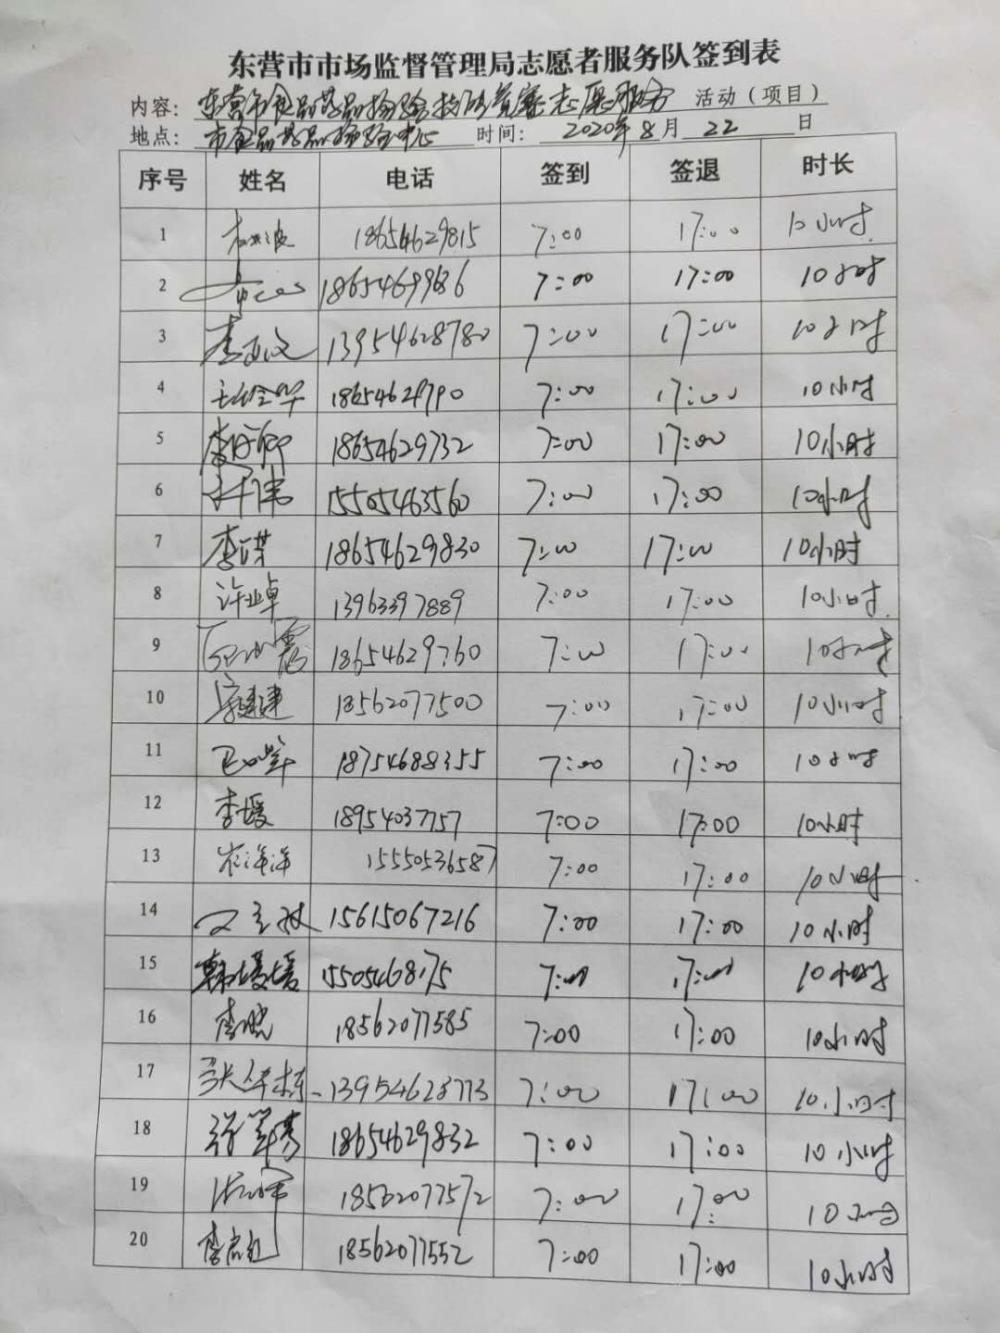 东营市市场监督管理局志愿者服务队签到表
内容：东营市食品药品检验技能竞赛志愿服务 活动（项目）
地点：市食品药品检验中心 时间：2020年8月22日
序号 姓名 电话 签到 签退 时长
1 18654629815 7:00 17:00 10小时
2 7:00 17:00 10小时
3 13954628780 7:00 17:00 10小时
4 18654629790 7:00 17:00 10小时
5 18654629732 7:00 17:00 10小时
6 15505463560 7:00 17:00 10小时
7 18654629830 7:00 17:00 10小时
8 许业卓 13963397889 7:00 17:00 10小时
9 18654629760 7:00 17:00 10小时
10 18562077500 7:00 17:00 10小时
11 18754688355 7:00 17:00 10小时
12 李媛 18954037757 7:00 17:00 10小时
13 崔洋洋 15550536587 7:00 17:00 10小时
14 15615067216 7:00 17:00 10小时
15 韩媛媛 7:00 17:00 10小时
16 李晓 18562077585 7:00 17:00 10小时
17 13954628773 7:00 17:00 10小时
18 18654629832 7:00 17:00 10小时
19 18562077572 7:00 17:00 10小时
20 18562077552 7:00 17:00 10小时